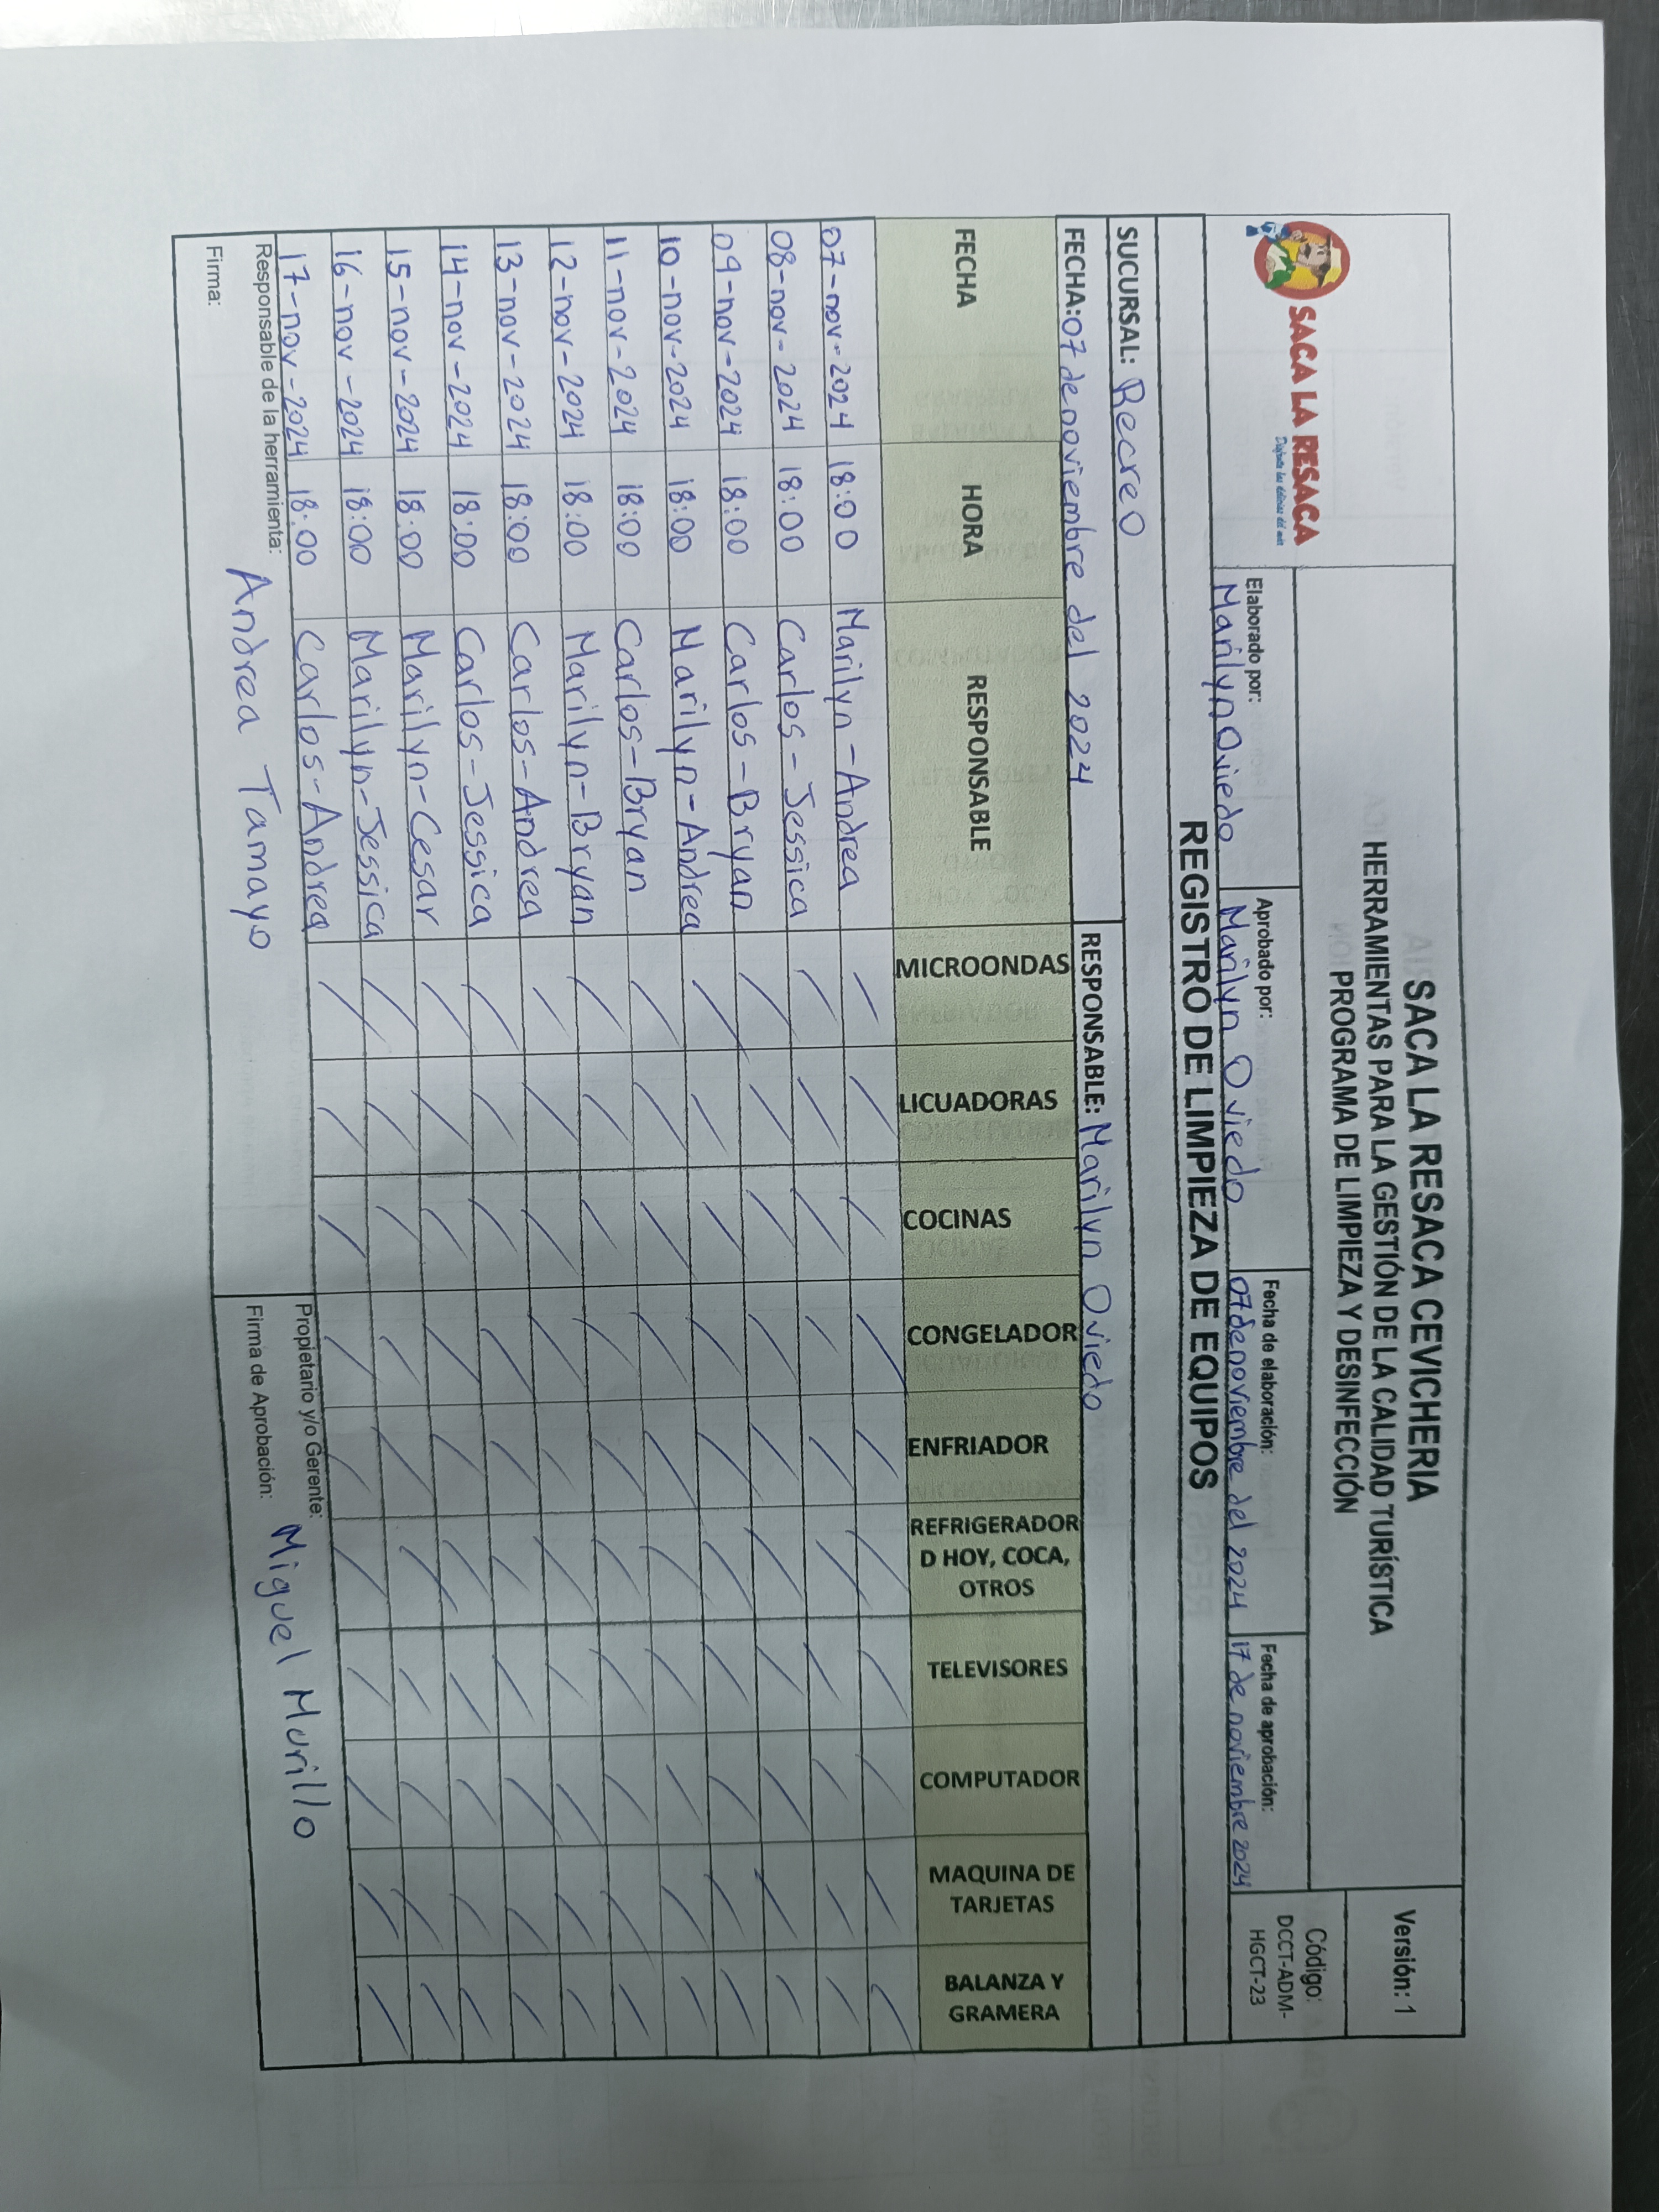 SACA LA RESACA
Disfruta las delicias del mar
SACA LA RESACA CEVICHERIA
HERRAMIENTAS PARA LA GESTIÓN DE LA CALIDAD TURÍSTICA
PROGRAMA DE LIMPIEZA Y DESINFECCIÓN
Versión: 1
Elaborado por:
Marilyn Oviedo
Aprobado por:
Marilyn Oviedo
Fecha de elaboración:
07 de noviembre del 2024
Fecha de aprobación:
17 de noviembre 2024
Código:
DCCT-ADM-
HGCT-23
REGISTRO DE LIMPIEZA DE EQUIPOS
SUCURSAL: Recreo
FECHA: 07 de noviembre del 2024 RESPONSABLE: Marilyn Oviedo
FECHA HORA RESPONSABLE MICROONDAS LICUADORAS COCINAS CONGELADOR ENFRIADOR REFRIGERADOR D HOY, COCA, OTROS TELEVISORES COMPUTADOR MAQUINA DE TARJETAS BALANZA Y GRAMERA
07-nov-2024 18:00 Marilyn-Andrea / / / / / / / / / /
08-nov-2024 18:00 Carlos-Jessica / / / / / / / / / /
09-nov-2024 18:00 Carlos-Bryan / / / / / / / / / /
10-nov-2024 18:00 Marilyn-Andrea / / / / / / / / / /
11-nov-2024 18:00 Carlos-Bryan / / / / / / / / / /
12-nov-2024 18:00 Marilyn-Bryan / / / / / / / / / /
13-nov-2024 18:00 Carlos-Andrea / / / / / / / / / /
14-nov-2024 18:00 Carlos-Jessica / / / / / / / / / /
15-nov-2024 18:00 Marilyn-Cesar / / / / / / / / / /
16-nov-2024 18:00 Marilyn-Jessica / / / / / / / / / /
17-nov-2024 18:00 Carlos-Andrea / / / / / / / / / /
Responsable de la herramienta: Andrea Tamayo
Firma:
Propietario y/o Gerente: Miguel Murillo
Firma de Aprobación: